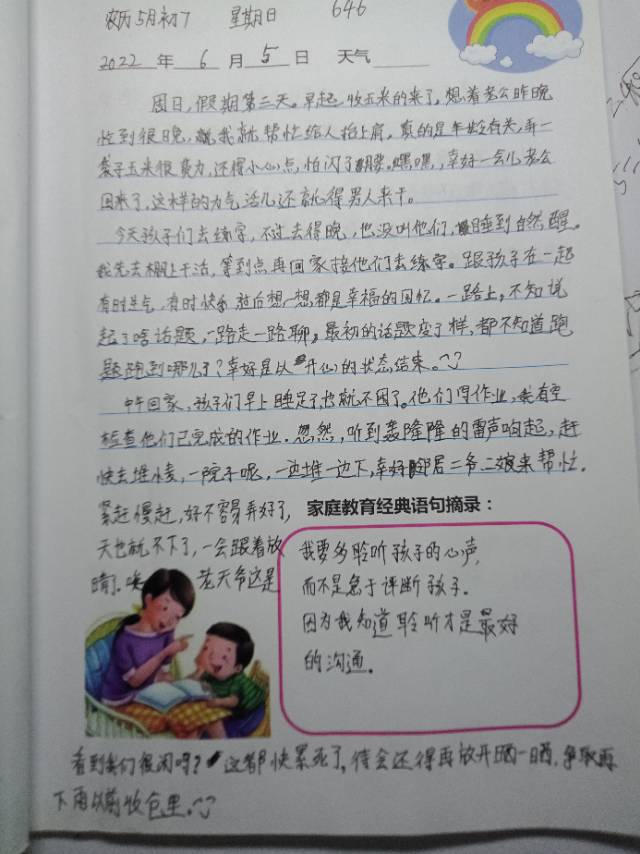 农历5月初7 星期日 646
2022年6月5日 天气
周日,假期第三天。早起收玉米的来了,想着老公昨晚
忙到很晚,我就帮忙给人抬上肩,真的是年龄有关,弄一
袋子玉米很费力,还得小心点,怕闪了腰。嘿嘿,幸好一会儿老公
回来了,这样的力气活儿还就得男人来干。
今天孩子们去练字,不过去得晚,也没叫他们,睡到自然醒。
我先去棚上干活,等到点再回家接他们去练字。跟孩子在一起
有时生气,有时快乐,过后想一想都是幸福的回忆。一路上,不知说
起了啥话题,一路走一路聊,最初的话题变了样,都不知道跑
题跑到哪儿了?幸好是以开心的状态结束。
中午回家,孩子们早上睡足了,也就不困了。他们写作业,我有空
检查他们已完成的作业。忽然,听到轰隆隆的雷声响起,赶
快去堆麦,一院子呢,一边堆一边下,幸好邻居二爷二娘来帮忙。
紧赶慢赶,好不容易弄好了,
天也就不下了,一会跟着放
晴。唉 老天爷这是
家庭教育经典语句摘录:
我要多聆听孩子的心声,
而不是急于评断孩子。
因为我知道聆听才是最好
的沟通。
看到我们很闲吗?这都快累死了,待会还得再放开晒一晒,争取再
下雨以前收仓里。